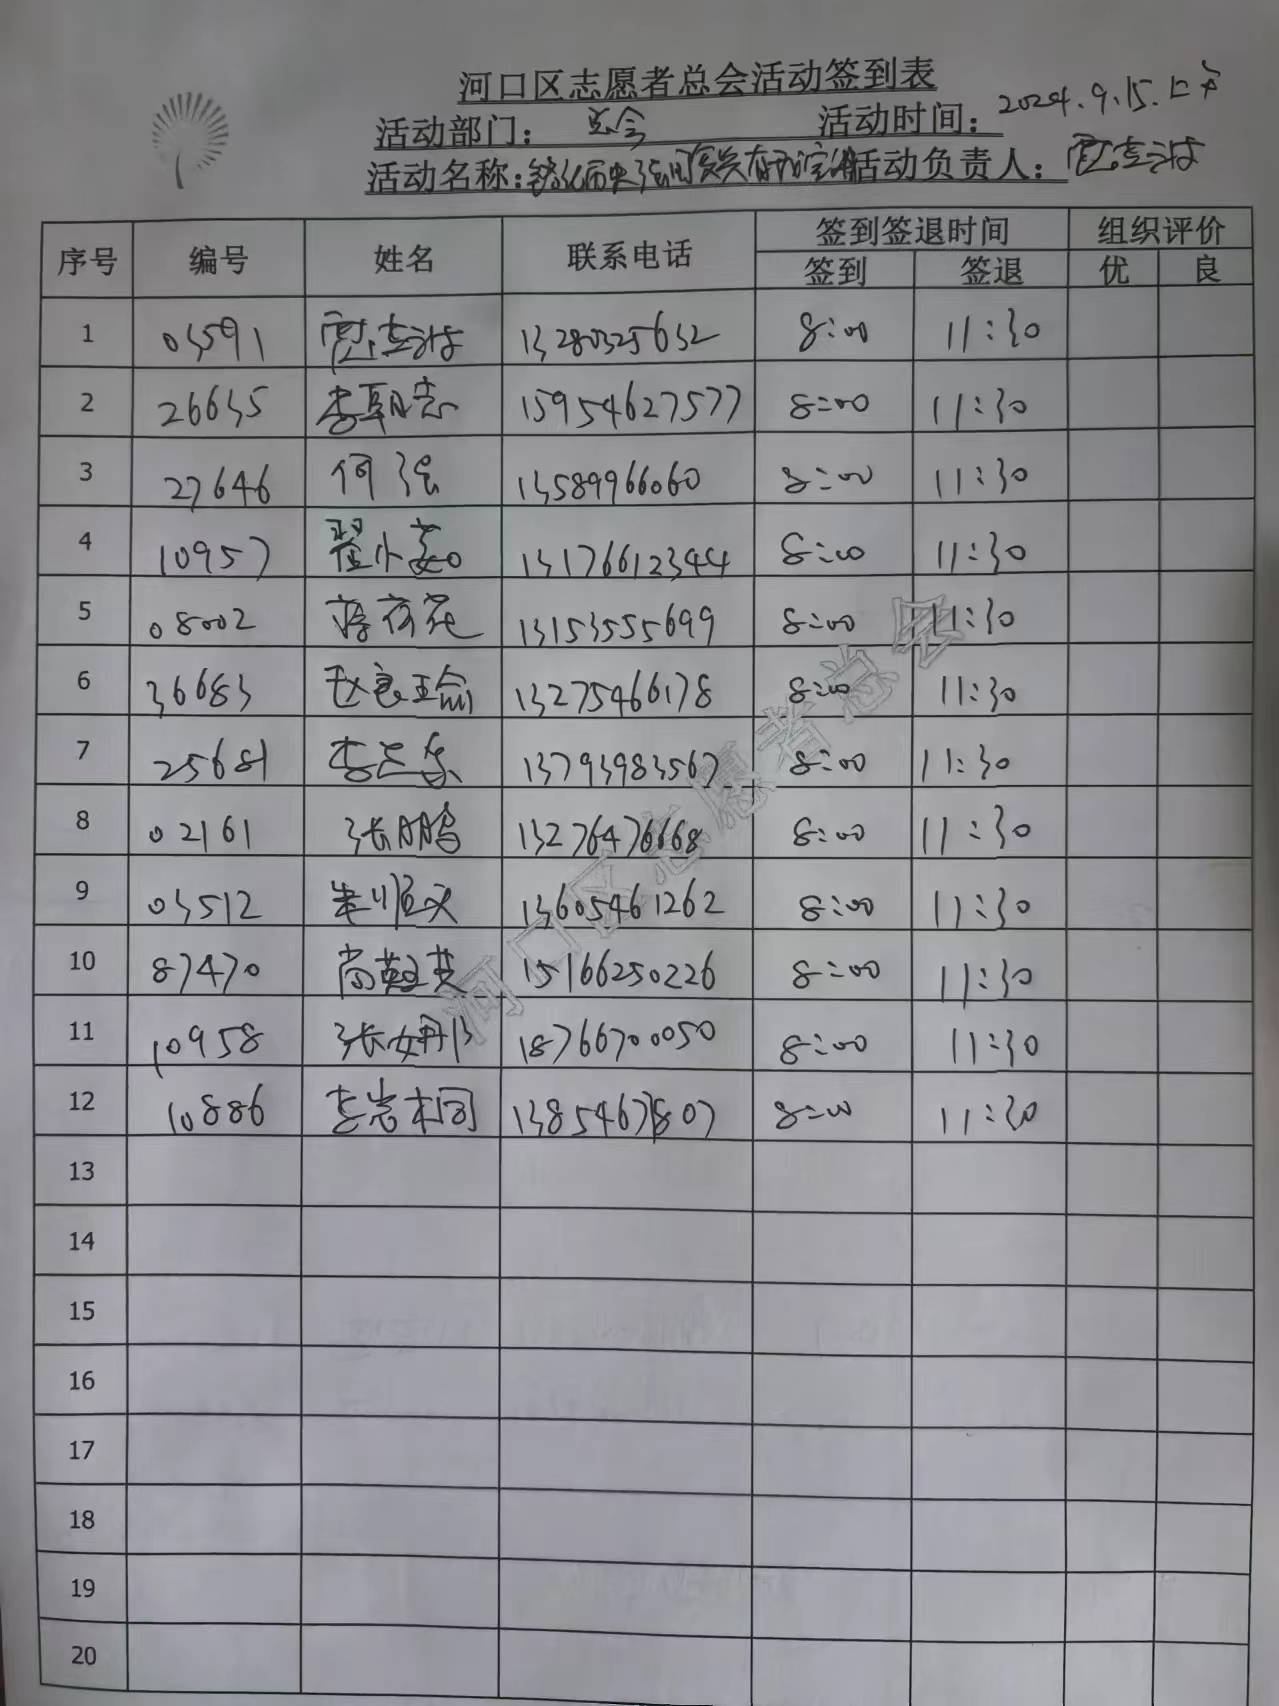 河口区志愿者总会活动签到表
活动部门： 总会 活动时间：2024.9.15.上午
活动名称： 活动负责人：
序号 编号 姓名 联系电话 签到签退时间 组织评价
签到 签退 优 良
1 03591 13280325632 8:00 11:30
2 26635 李朝志 15954627577 8:00 11:30
3 27646 何强 13589966060 8:00 11:30
4 10957 翟小 13176612344 8:00 11:30
5 08002 荷花 13153555699 8:00 11:30
6 36683 赵良瑜 13275466178 8:00 11:30
7 25681 李 13793983567 8:00 11:30
8 02161 张鹏 13276476668 8:00 11:30
9 03512 13605461262 8:00 11:30
10 87470 尚 15166250226 8:00 11:30
11 10958 张姗 18766700050 8:00 11:30
12 10886 李岩桐 13854673807 8:00 11:30
13
14
15
16
17
18
19
20
河口区志愿者总会